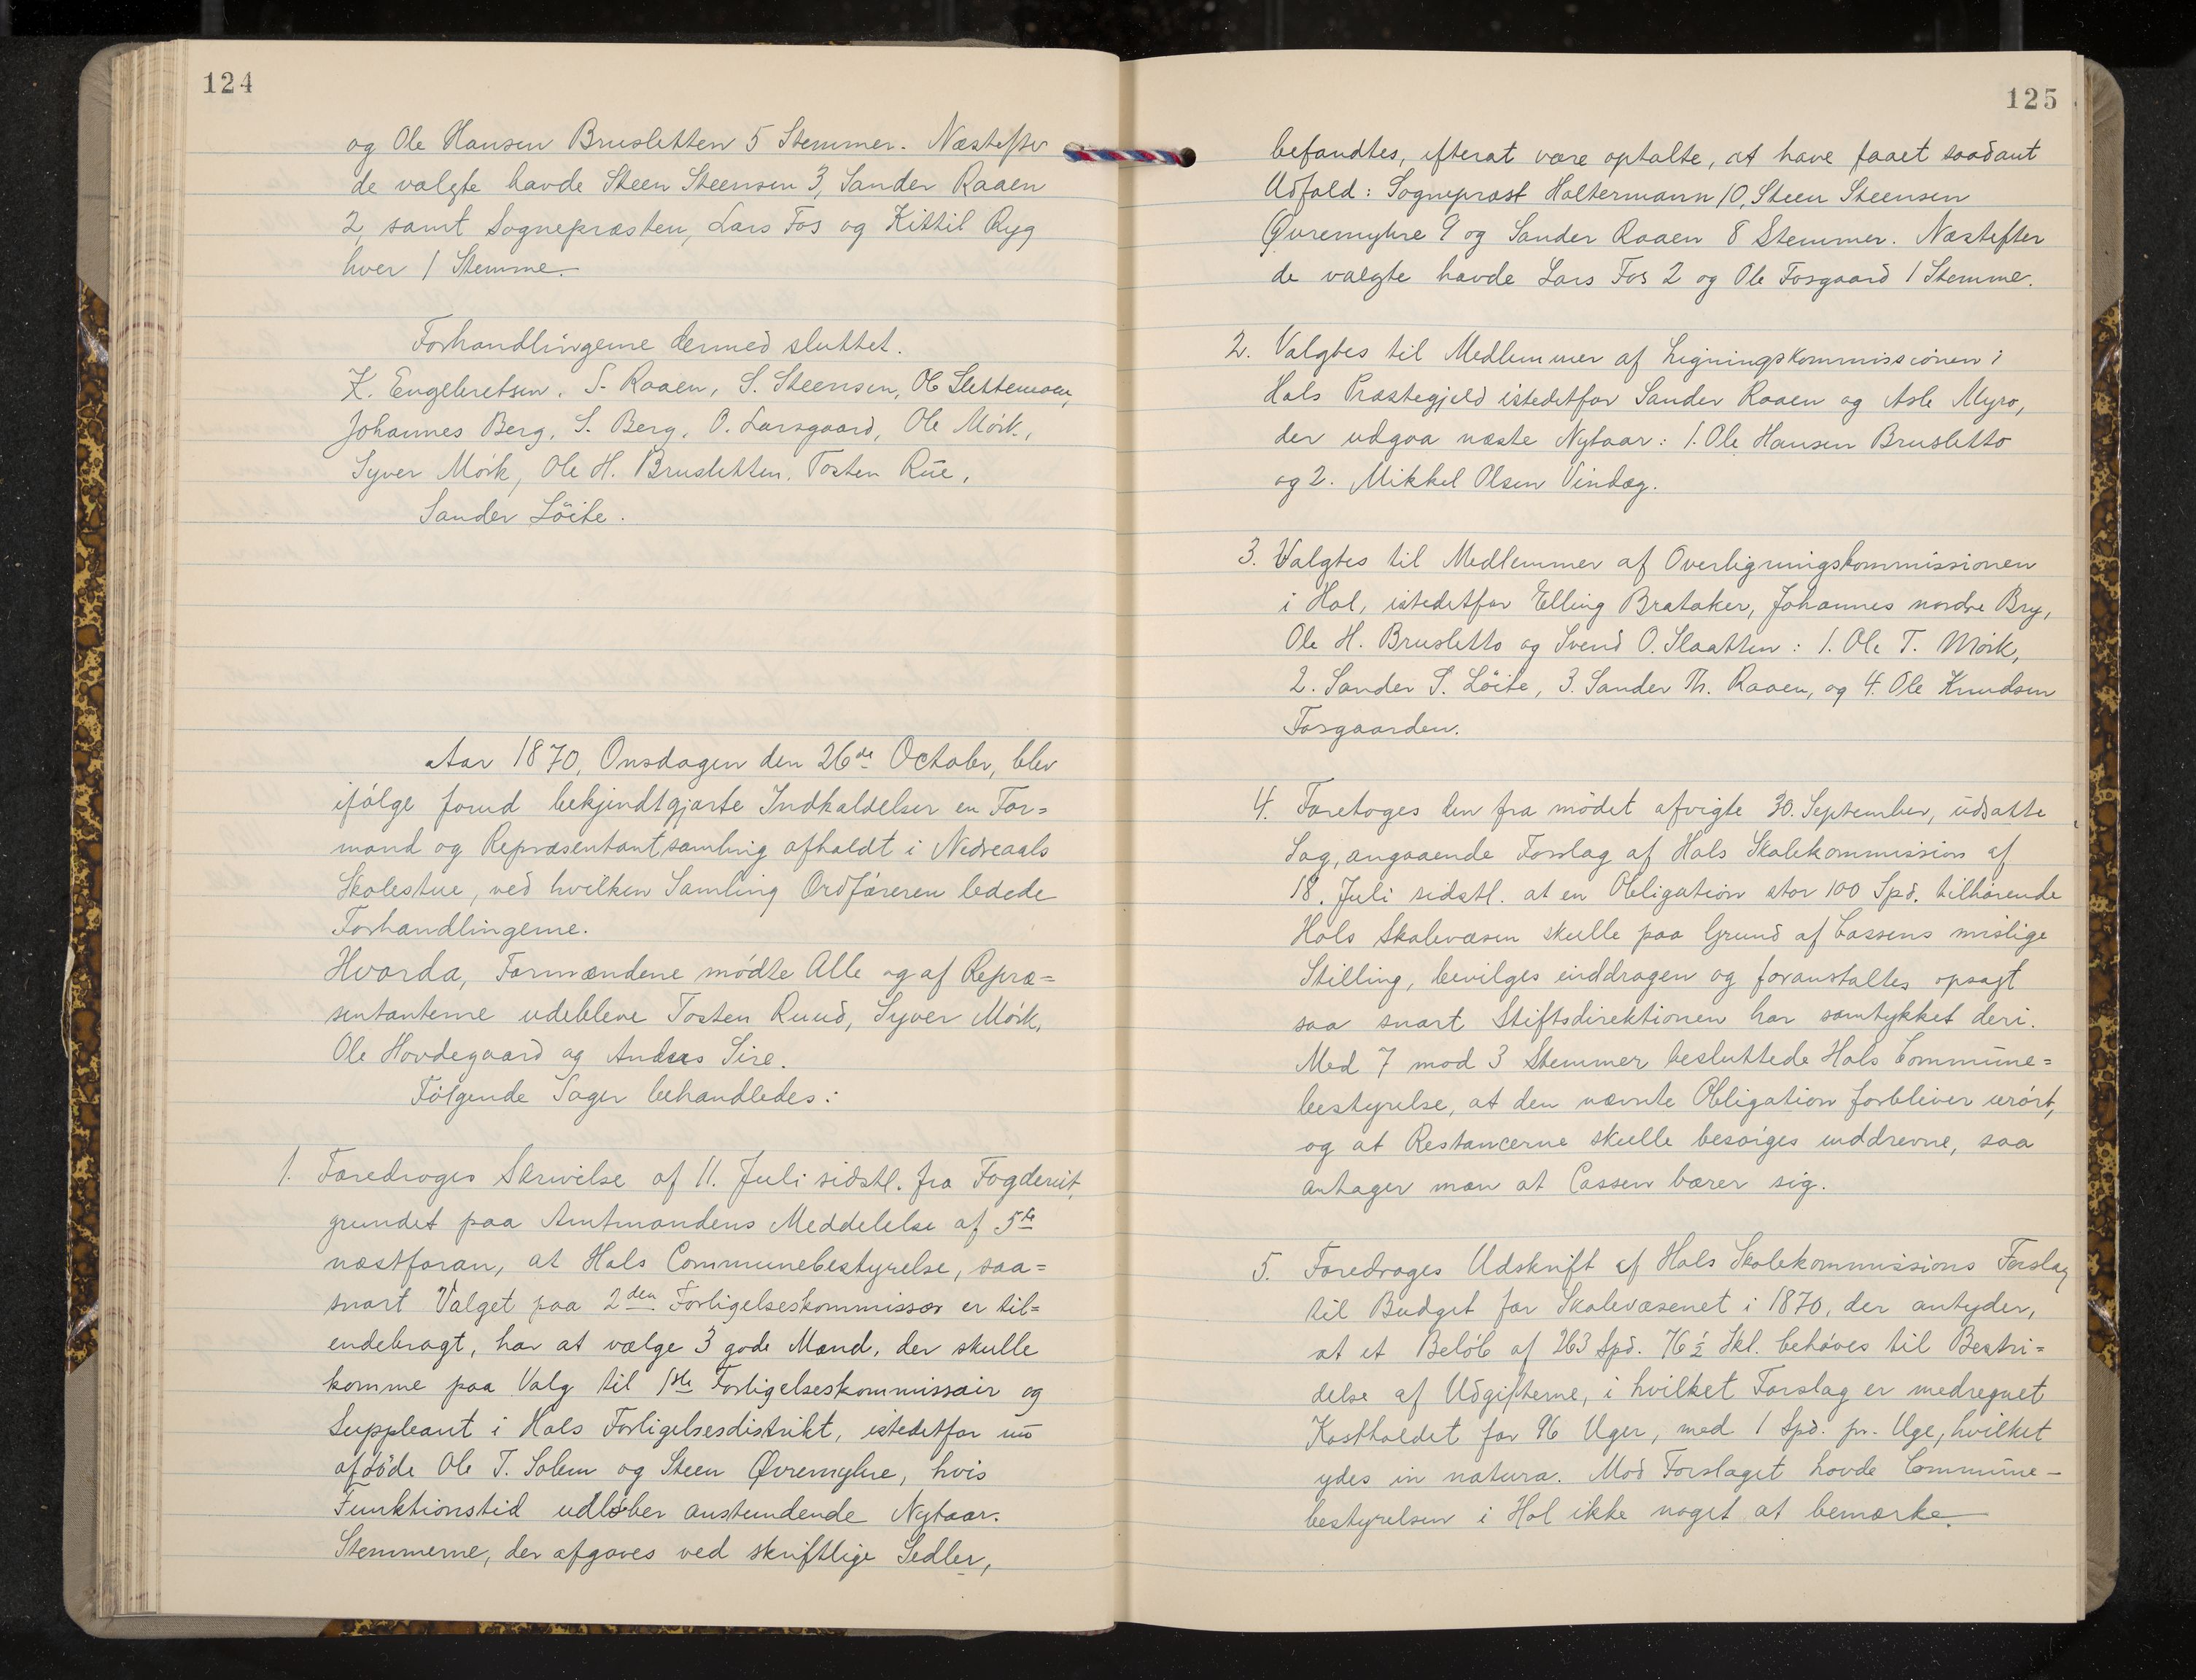 124
og Ole Hansen Brusletten 5 Stemmer. Næstefter
de valgte havde Steen Steensen 3, Sander Raaen
2, samt Sognepræsten, Lars Fos og Kittil Ryg
hver 1 Stemme.
Forhandlingerne dermed sluttet.
K. Engebretsen. S. Raaen, S. Steensen, Ole Slettemoen,
Johannes Berg, S. Berg, O. Larsgaard, Ole Mörk,
Syver Mörk, Ole H. Brusletten, Tosten Rue,
Sander Löite.
Aar 1870, Onsdagen den 26de October, blev
ifölge forud bekjendtgjorte Indkaldelser en For=
mand og Repræsentantsamling afholdt i Nedreaals
Skolestue, ved hvilken Samling Ordföreren ledede
Forhandlingerne.
Hvorda, Formændene mödte Alle og af Repræ=
sentanterne udebleve Tosten Ruud, Syver Mörk,
Ole Hovdegaard og Andreas Sire.
Fölgende Sager behandledes:
1. Foredroges Skrivelse af 11. Juli sidstl. fra Fogderiet,
grundet paa Amtmandens Meddelelse af 5te
næstforan, at Hols Communebestyrelse, saa=
snart Valget paa 2den Forligelseskommissær er til=
endebragt, har at vælge 3 gode Mænd, der skulle
komme paa Valg til 1ste Forligelseskommissair og
Suppleant i Hols Forligelsesdistrikt, istedetfor nu
afdöde Ole T. Solem og Steen Øvremyhre, hvis
Funktionstid udlöber anstundende Nytaar.
Stemmerne, der afgaves ved skriftlige Sedler,
125
befandtes, efterat være optalte, at have faaet saadant
Udfald: Sognepræst Holtermann 10, Steen Steensen
Øvremyhre 9 og Sander Raaen 8 Stemmer. Næstefter
de valgte havde Lars Fos 2 og Ole Fosgaard 1 Stemme.
2. Valgtes til Medlemmer af Ligningskommissionen i
Hols Præstegjeld istedetfor Sander Raaen og Asle Myro,
der udgaa næste Nytaar: 1. Ole Hansen Brusletto
og 2. Mikkel Olsen Vindæg.
3. Valgtes til Medlemmer af Overligningskommissionen
i Hol, istedetfor Elling Brataker, Johannes nordre Bry,
Ole H. Brusletto og Svend O. Slaatten: 1. Ole T. Mörk,
2. Sander S. Löite, 3. Sander Th. Raaen, og 4. Ole Knudsen
Fosgaarden.
4. Foretoges den fra mödet afvigte 30. September, udsatte
Sag, angaaende Forslag af Hols Skolekommission af
18. Juli sidstl. at en Obligation stor 100 Spd. tilhörende
Hols Skolevæsen skulle paa Grund af Cassens mislige
Stilling, bevilges inddragen og foranstaltes opsagt
saa snart Stiftsdirektionen har samtykket deri.
Med 7 mod 3 Stemmer besluttede Hols Commune=
bestyrelse, at den nævnte Obligation forbliver urört,
og at Restancerne skulle besörges inddrevne, saa
antager man at Cassen bærer sig.
5. Foredroges Udskrift af Hols Skolekommissions Forslag
til Budget for Skolevæsenet i 1870, der antyder,
at et Belöb af 263 Spd. 76 1/2 Skl. behöves til Bestri=
delse af Udgifterne, i hvilket Forslag er medregnet
Kostholdet for 96 Uger, med 1 Spd. pr. Uge, hvilket
ydes in natura. Mod Forslaget havde Commune-
bestyrelsen i Hol ikke noget at bemærke.